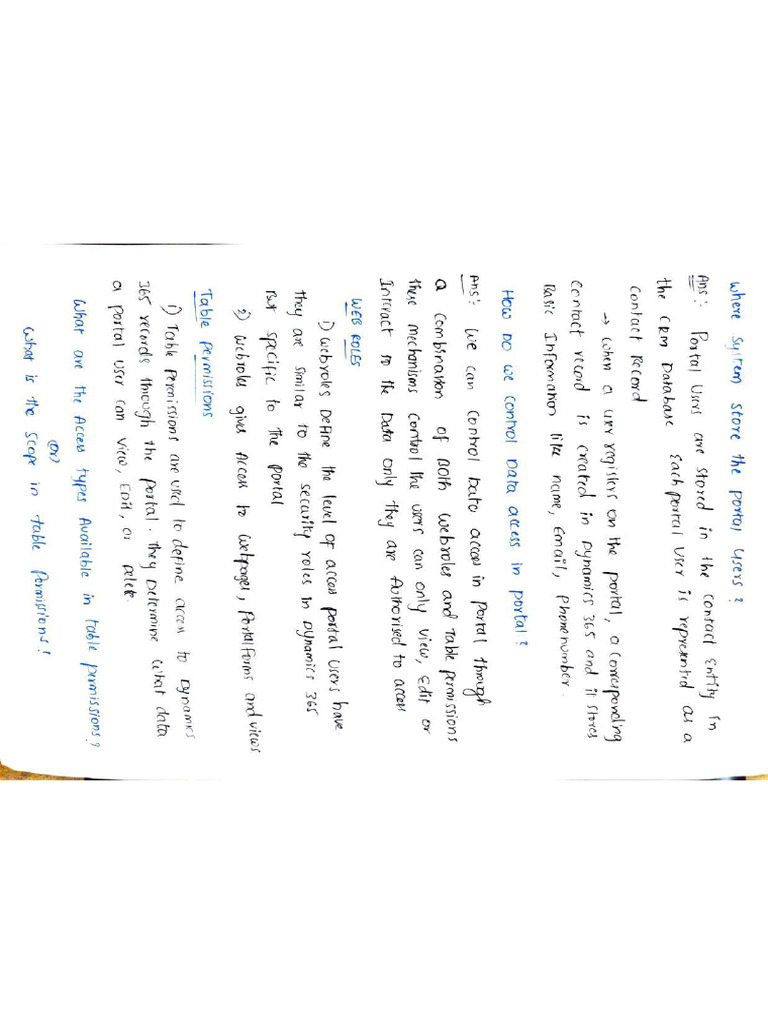 where System store the portal users?
Ans:- Portal Users are stored in the contact Entity in
the CRM Database Each portal User is represented as a
contact Record
→ when a user registers on the portal, a corresponding
contact record is created in Dynamics 365 and it stores
Basic Information like name, Email, Phone number.
How Do we control Data access in portal?
Ans:- we can control Data access in Portal through
a combination of Both webroles and Table permissions
these mechanisms control the users can only view, Edit or
Interact to the Data only they are Authorised to access
WEB ROLES
1) webroles Define the level of access portal users have
they are similar to the security roles in Dynamics 365
But specific to the portal
2) webroles gives access to webpages, Portal Forms and views
Table Permissions
1) Table Permissions are used to define access to Dynamics
365 records through the portal. They Determine what data
a portal user can view, Edit, or Delete
what are the Access types Available in table permissions?
(or)
what is the scope in table Permissions!